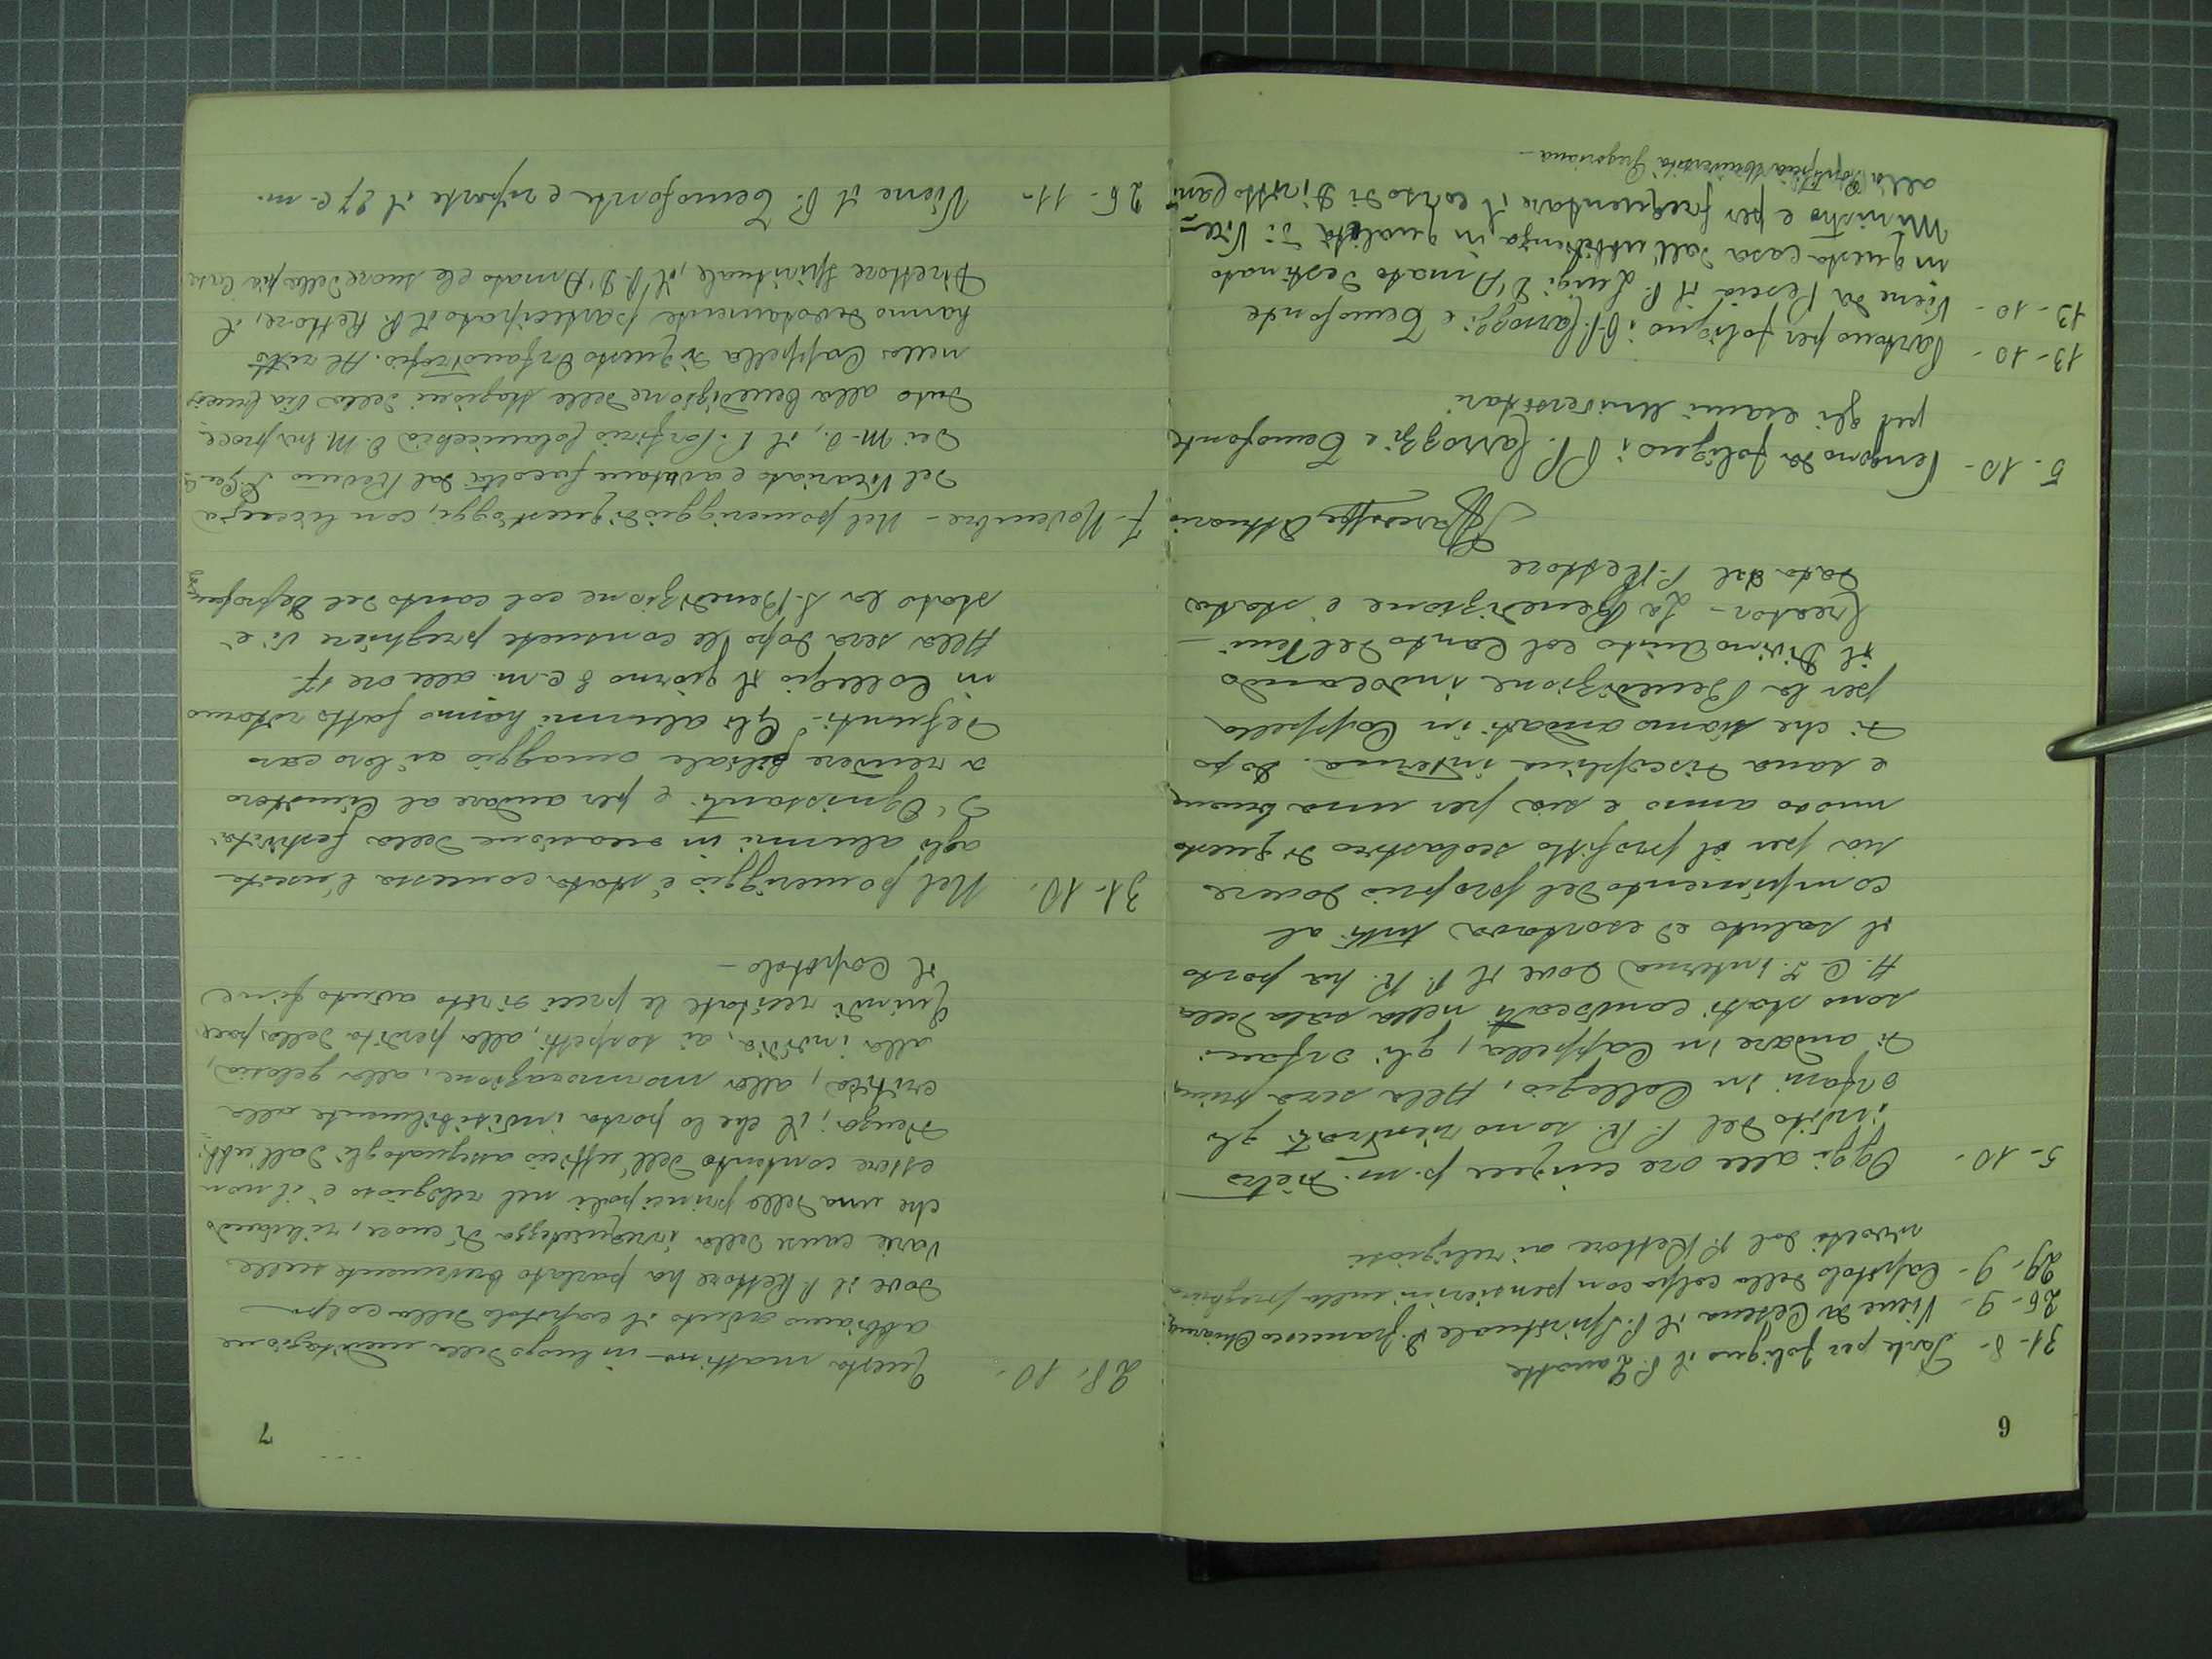 6
31-8- Parte per Foligno il P. Zanatta
26-9- Viene da Cesena il P. Spirituale P. Francesco
29-9- Capitolo della colpa con pensierini sulla preghiera
svolti dal P. Rettore ai religiosi
5-10- Oggi alle ore cinque p.m. dietro
invito del P. R. sono rientrati gli
orfani in Collegio, Alla sera prima
di andare in Cappella, gli orfani
sono stati convocati nella sala della
A. C. I. interna dove il P. R. ha porto
il saluto ed esortava tutti al
compimento del proprio dovere
sia per il profitto scolastico di questo
nuovo anno e sia per una buona
e sana disciplina interna. Dopo
di che siamo andati in Cappella
per la Benedizione invocando
il Divino Aiuto col Canto del Veni-
Creator - La Benedizione è stata
data dal P. Rettore
Attuario
5-10- Vengono da Foligno i PP. Carrozzi e Temofonte
per gli esami universitari
13-10- Partono per Foligno i PP. Carrozzi e Temofonte
13-10- Viene da Pescia il P. Luigi D'Amato destinato
in questa casa dall'ubbidienza in qualità di Vice-
Ministro e per frequentare il corso di Diritto Can
alla Pontificia Università Gregoriana -
7
28-10- Questa mattina in luogo della meditazione
abbiamo avuto il capitolo della colpa
dove il P. Rettore ha parlato brevemente sulle
varie cause della irrequietezza di cuore, rilevando
che una delle principali nel religioso è il non
essere contento dell'ufficio assegnatogli dall'ubbi-
dienza; il che lo porta indisibilmente alla
critica, alla mormorazione, alla gelosia,
alla invidia, ai sospetti, alla perdita della pace
Quindi recitate le preci di rito avuto fine
il Capitolo -
31-10- Nel pomeriggio è stata concessa l'uscita
agli alunni in occasione della festività
d'Ognissanti e per andare al Cimitero
a rendere filiale omaggio ai loro cari
Defunti - Gli alunni hanno fatto ritorno
in Collegio il giorno 3 c.m. alle ore 17-
Alla sera dopo le consuete preghiere vi è
stata la S. Benedizione col canto del Deprofundis
7- Novembre - Nel pomeriggio di quest'oggi, con licenza
del Vicariato e avutane facoltà dal Rev.mo P. Gen.
dei M. O., il P. Porfirio O. M. ha proce-
duto alla benedizione delle stazioni della Via Crucis
nella Cappella di questo Orfanotrofio. Al rito
hanno devotamente partecipato il P. Rettore, il
Direttore Spirituale, il P. D'Amato e le suore della pia Casa
26-11- Viene il P. Temofonte e riparte il 27 c.m.